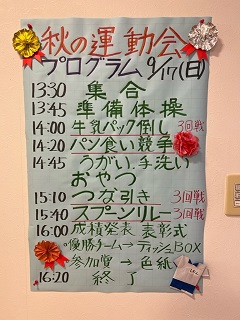 秋の運動会
プログラム 9/17(日)
13:30 集合
13:45 準備体操
14:00 牛乳パック倒し 3回戦
14:20 パン食い競争
14:45 うがい、手洗い
おやつ
15:10 つな引き 3回戦
15:40 スプーンリレー 3回戦
16:00 成積発表 表彰式
○優勝チーム→ティッシュBOX
参加賞→色紙
16:20 終了